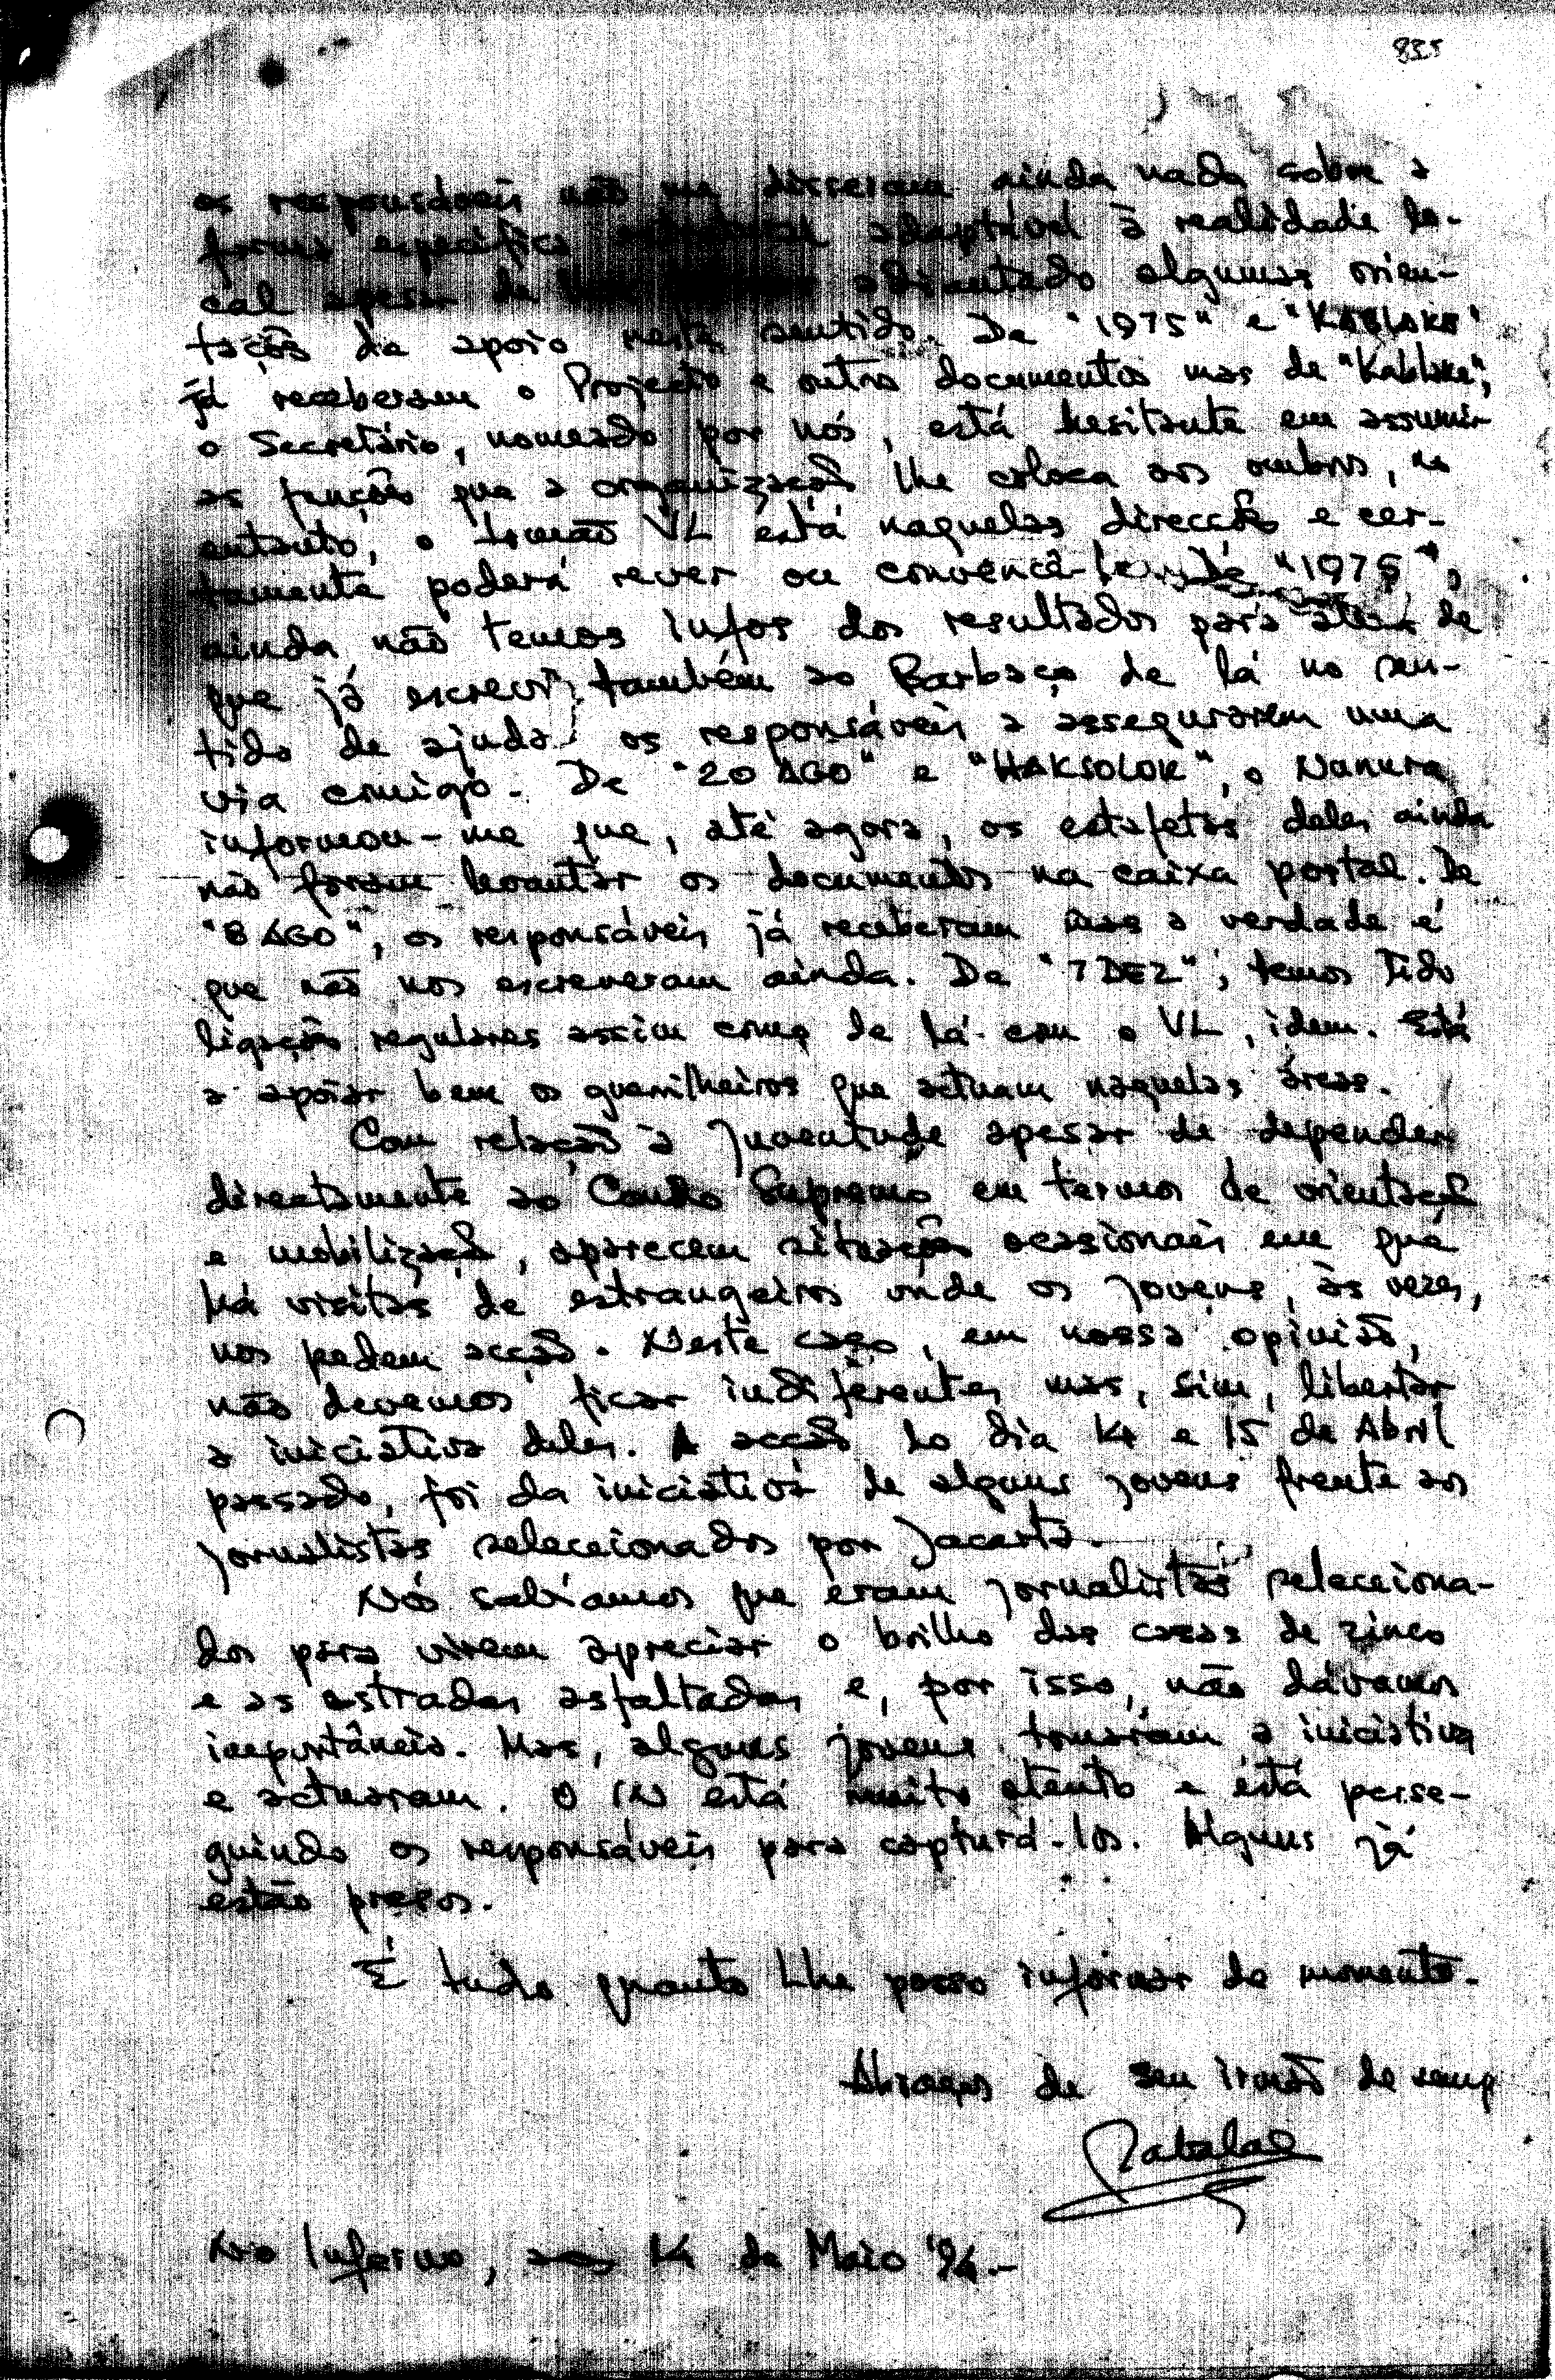 835
os responsáveis não me disseram ainda nada sobre a
forma específica adaptável à realidade lo-
cal apesar de adiantado algumas orien-
tações de apoio neste sentido. De "1975" e "KABLAKE"
já receberam o Projecto e outros documentos mas de "Kablake",
o Secretário, nomeado por nós, está hesitante em assumir
as funções que a organização lhe coloca aos ombros, no
entanto, o Irmão VL está naquelas direcções e cer-
tamente poderá rever ou convencê-lo. De "1975",
ainda não temos infos dos resultados para além de
que já escrevi também ao Barbaço de lá no sen-
tido de ajudar os responsáveis a assegurarem uma
via comigo. De "20 AGO" e "HAKSOLOK", o Nunura
informou-me que, até agora, os estafetas deles ainda
não foram levantar os documentos na caixa postal. De
"8 AGO", os responsáveis já receberam mas a verdade é
que não nos escreveram ainda. De "7 DEZ", temos tido
ligações regulares assim como de lá com o VL, idem. Está
a apoiar bem os guerrilheiros que actuam naquelas áreas.
Com relação à Juventude apesar de depender
directamente ao Cmdo Supremo em termos de orientação
e mobilização, aparecem situações ocasionais em que
há visitas de estrangeiros onde os jovens, às vezes,
nos pedem acção. Neste caso, em nossa opinião,
não devemos ficar indiferentes mas, sim, libertar
a iniciativa deles. A acção do dia 14 e 15 de Abril
passado, foi da iniciativa de alguns jovens frente aos
jornalistas seleccionados por Jacarta.
Nós sabíamos que eram jornalistas selecciona-
dos para virem apreciar o brilho das casas de zinco
e as estradas asfaltadas e, por isso, não dávamos
importância. Mas, alguns jovens tomaram a iniciativa
e actuaram. O IN está muito atento e está perse-
guindo os responsáveis para capturá-los. Alguns já
estão presos.
É tudo quanto lhe posso informar de momento.
Abraços de seu irmão de sempre
No Inferno, aos 14 de Maio '94.-